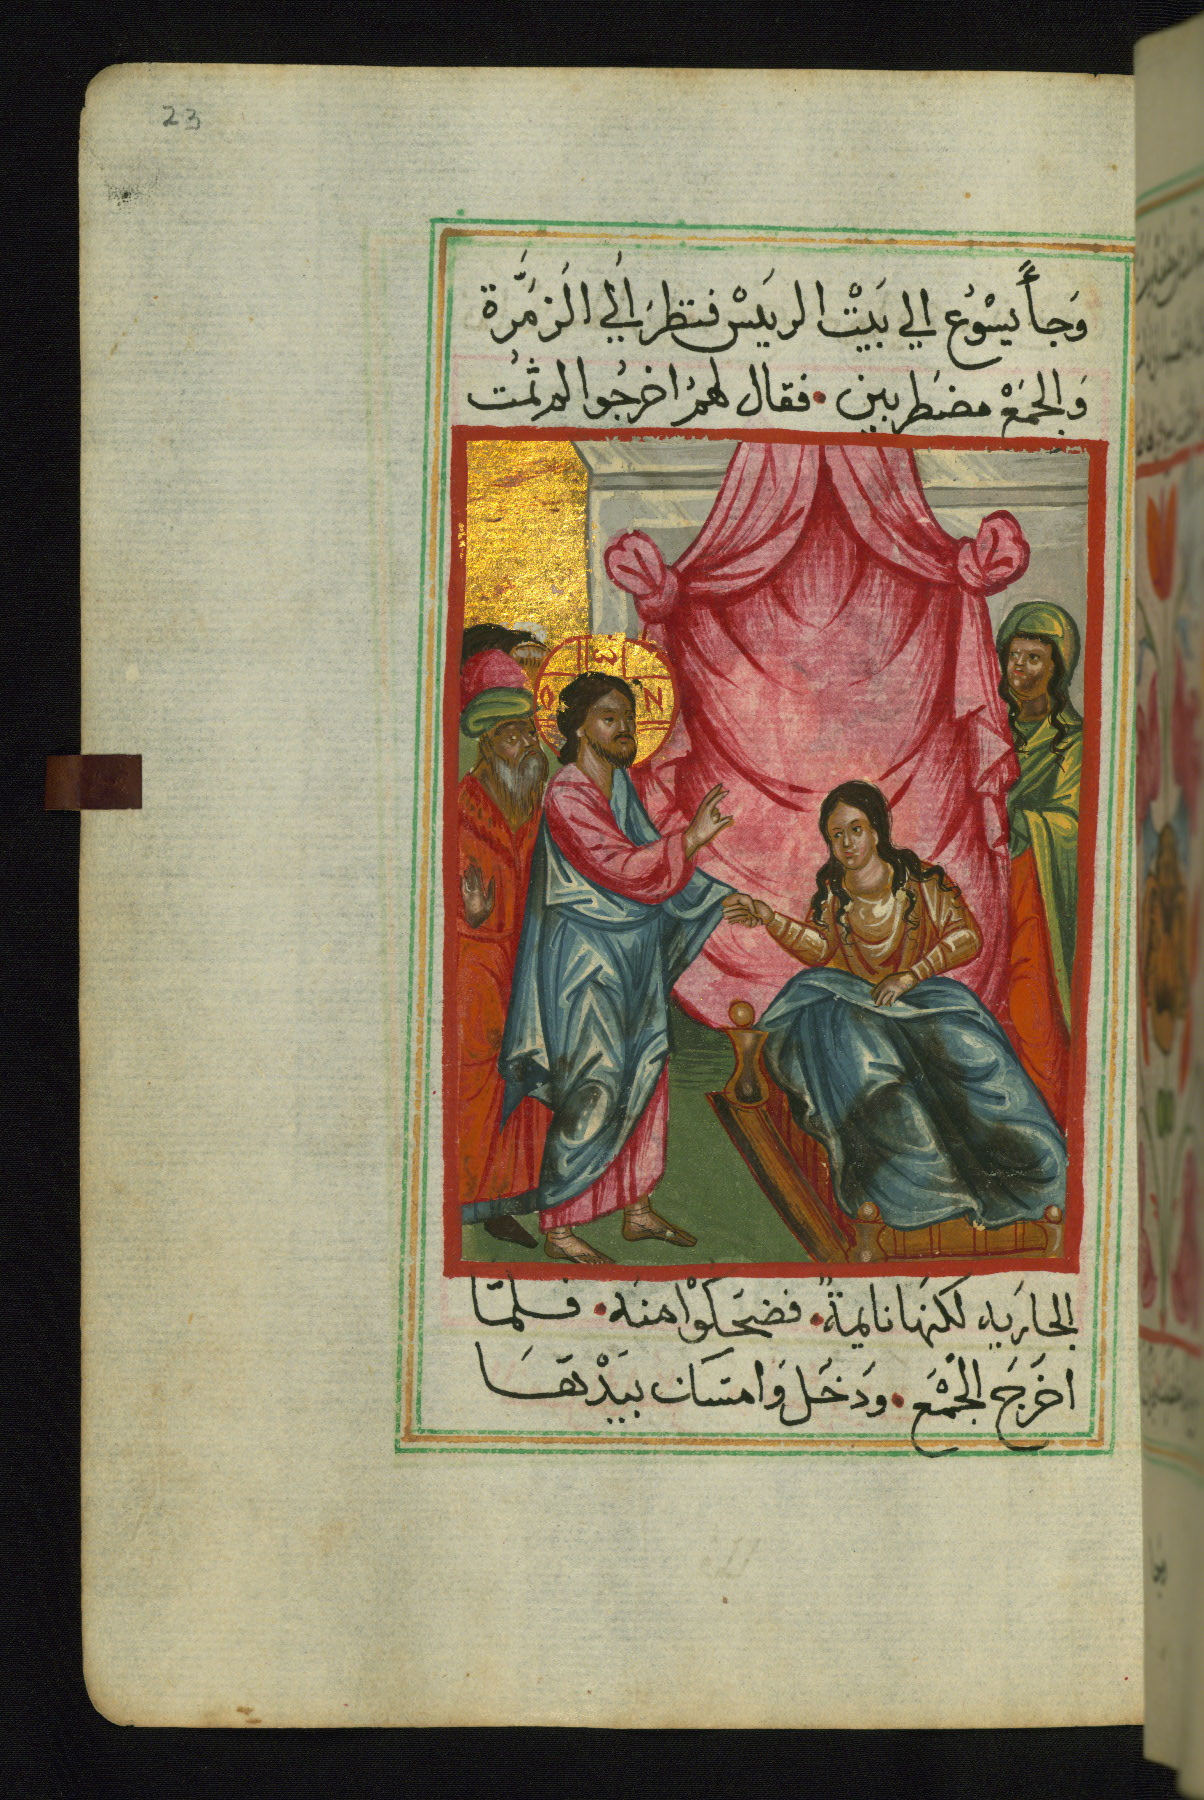 23
وَجأً يسْوُع الي بَيْتْ الريَسْ فنتظرَ الُي الَزمَّرة
وَالجَمَعْ مضطَربين • فقال لهمُ اخرجُوا لم ثمُت
Ο Ѡ Ν
الجارَيه لكنهَا نايمةً • فضحَكوْا منهُ • فلمّا
اخرَجَ الجْمَع • ودَخَل وَامسَك بيَدْهَا